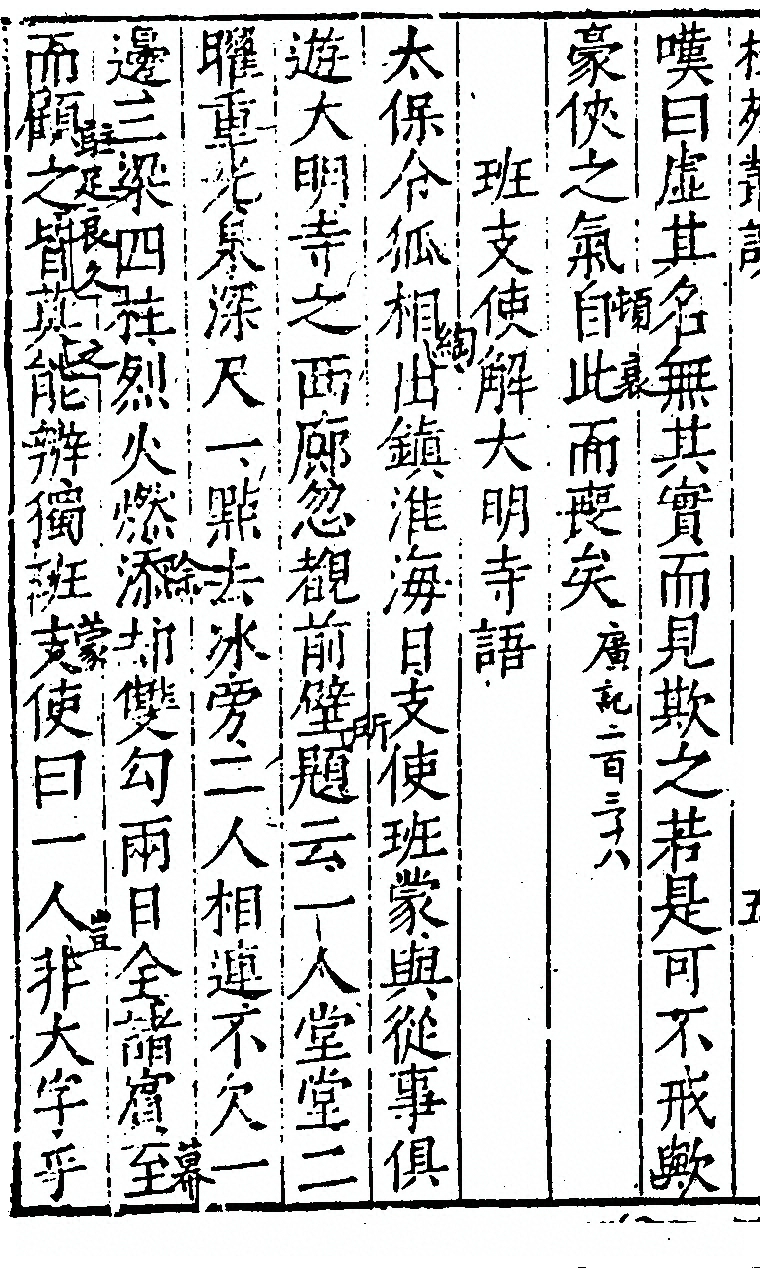 桂苑叢談
五
嘆曰虛其名無其實而見欺之若是可不戒歟
豪俠之氣自此而喪矣
頓衰
廣記二百三十八
班支使解大明寺語
太保令狐相出鎮淮海日支使班蒙與從事俱
綯
遊大明寺之西廊忽覩前壁題云一人堂堂二
所
曜重光泉深尺一點去冰旁二人相連不欠一
邊三梁四柱烈火燃添却雙勾兩日全諸賓至
除
幕
而顧之皆莫能辨獨班支使曰一人非大字乎
駐足良久
之
蒙
豈